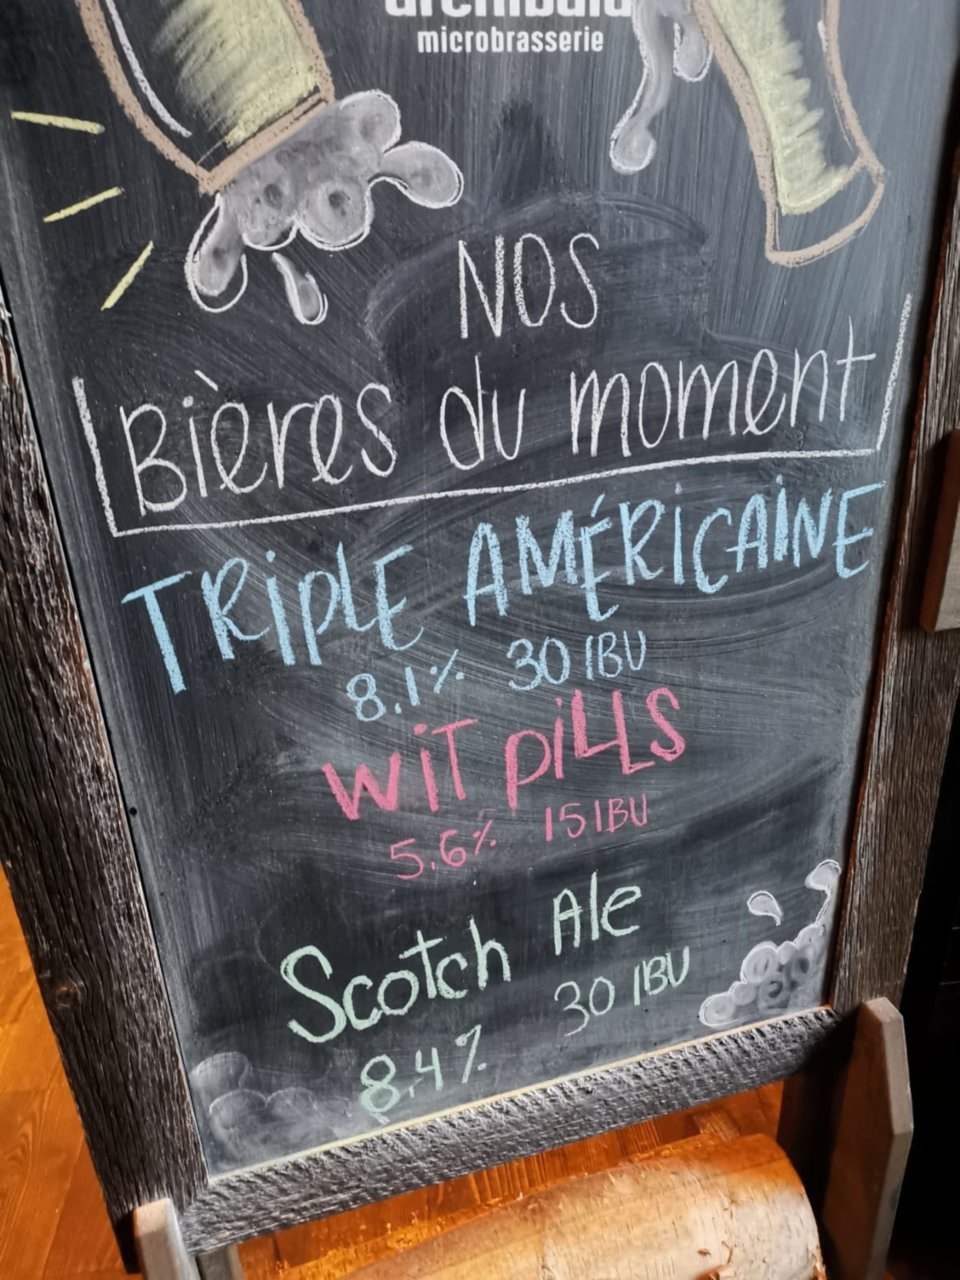 archibald
microbrasserie
NOS
Bières du moment
TRiPLE AMÉRiCAiNE
8.1% 30 IBU
WiT PiLLS
5.6% 15 IBU
Scotch Ale
8.4% 30 IBU